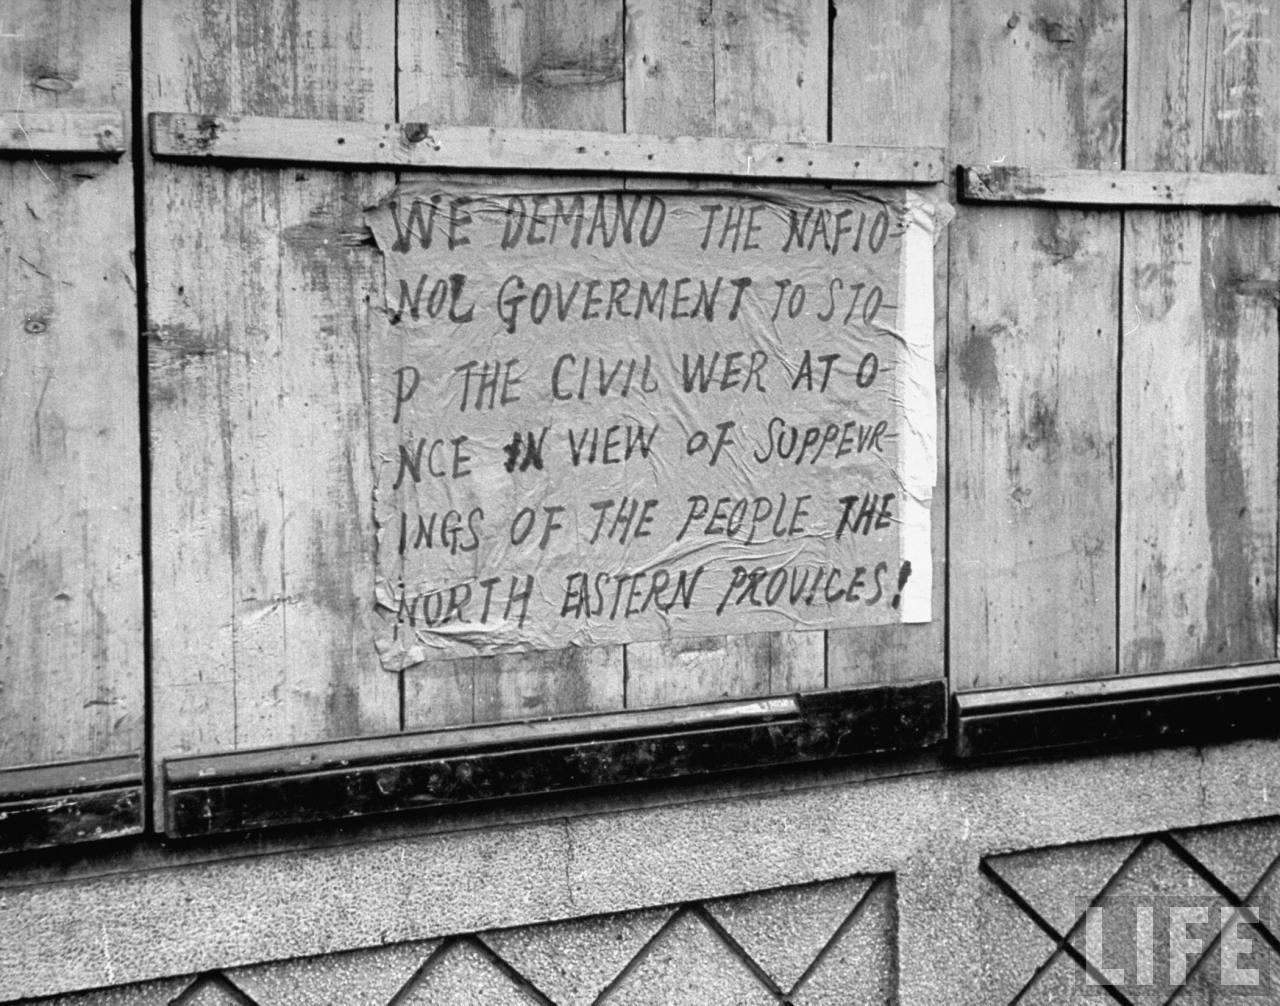 WE DEMAND THE NAFIO-
NOL GOVERMENT TO STO-
P THE CIVIL WER AT O-
NCE IN VIEW OF SUPPEVR-
INGS OF THE PEOPLE THE
NORTH EASTERN PROVICES!
LIFE